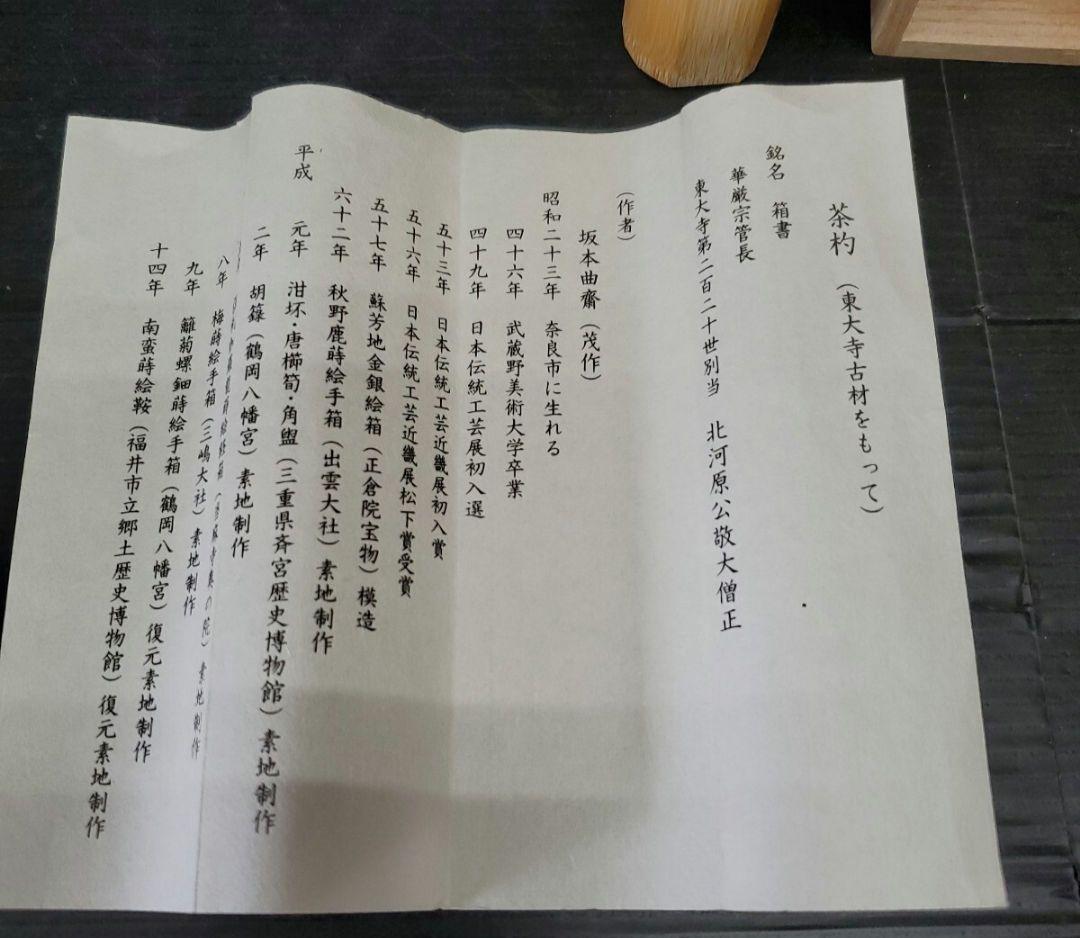 茶杓 (東大寺古材をもって)
銘名 箱書
華厳宗管長
東大寺第二百二十世別当 北河原公敬大僧正
(作者)
坂本曲齋 (茂作)
昭和二十三年 奈良市に生れる
四十六年 武蔵野美術大学卒業
四十九年 日本伝統工芸展初入選
五十三年 日本伝統工芸近畿展初入賞
五十六年 日本伝統工芸近畿展松下賞受賞
五十七年 蘇芳地金銀絵箱 (正倉院宝物) 模造
六十二年 秋野鹿蒔絵手箱 (出雲大社) 素地制作
平成 元年 泔坏・唐櫛笥・角盥 (三重県斉宮歴史博物館) 素地制作
二年 胡籙 (鶴岡八幡宮) 素地制作
蒔絵経箱 の院) 素地制作
八年 梅蒔絵手箱 (三嶋大社) 素地制作
九年 籬菊螺鈿蒔絵手箱 (鶴岡八幡宮) 復元素地制作
十四年 南蛮蒔絵鞍 (福井市立郷土歴史博物館) 復元素地制作